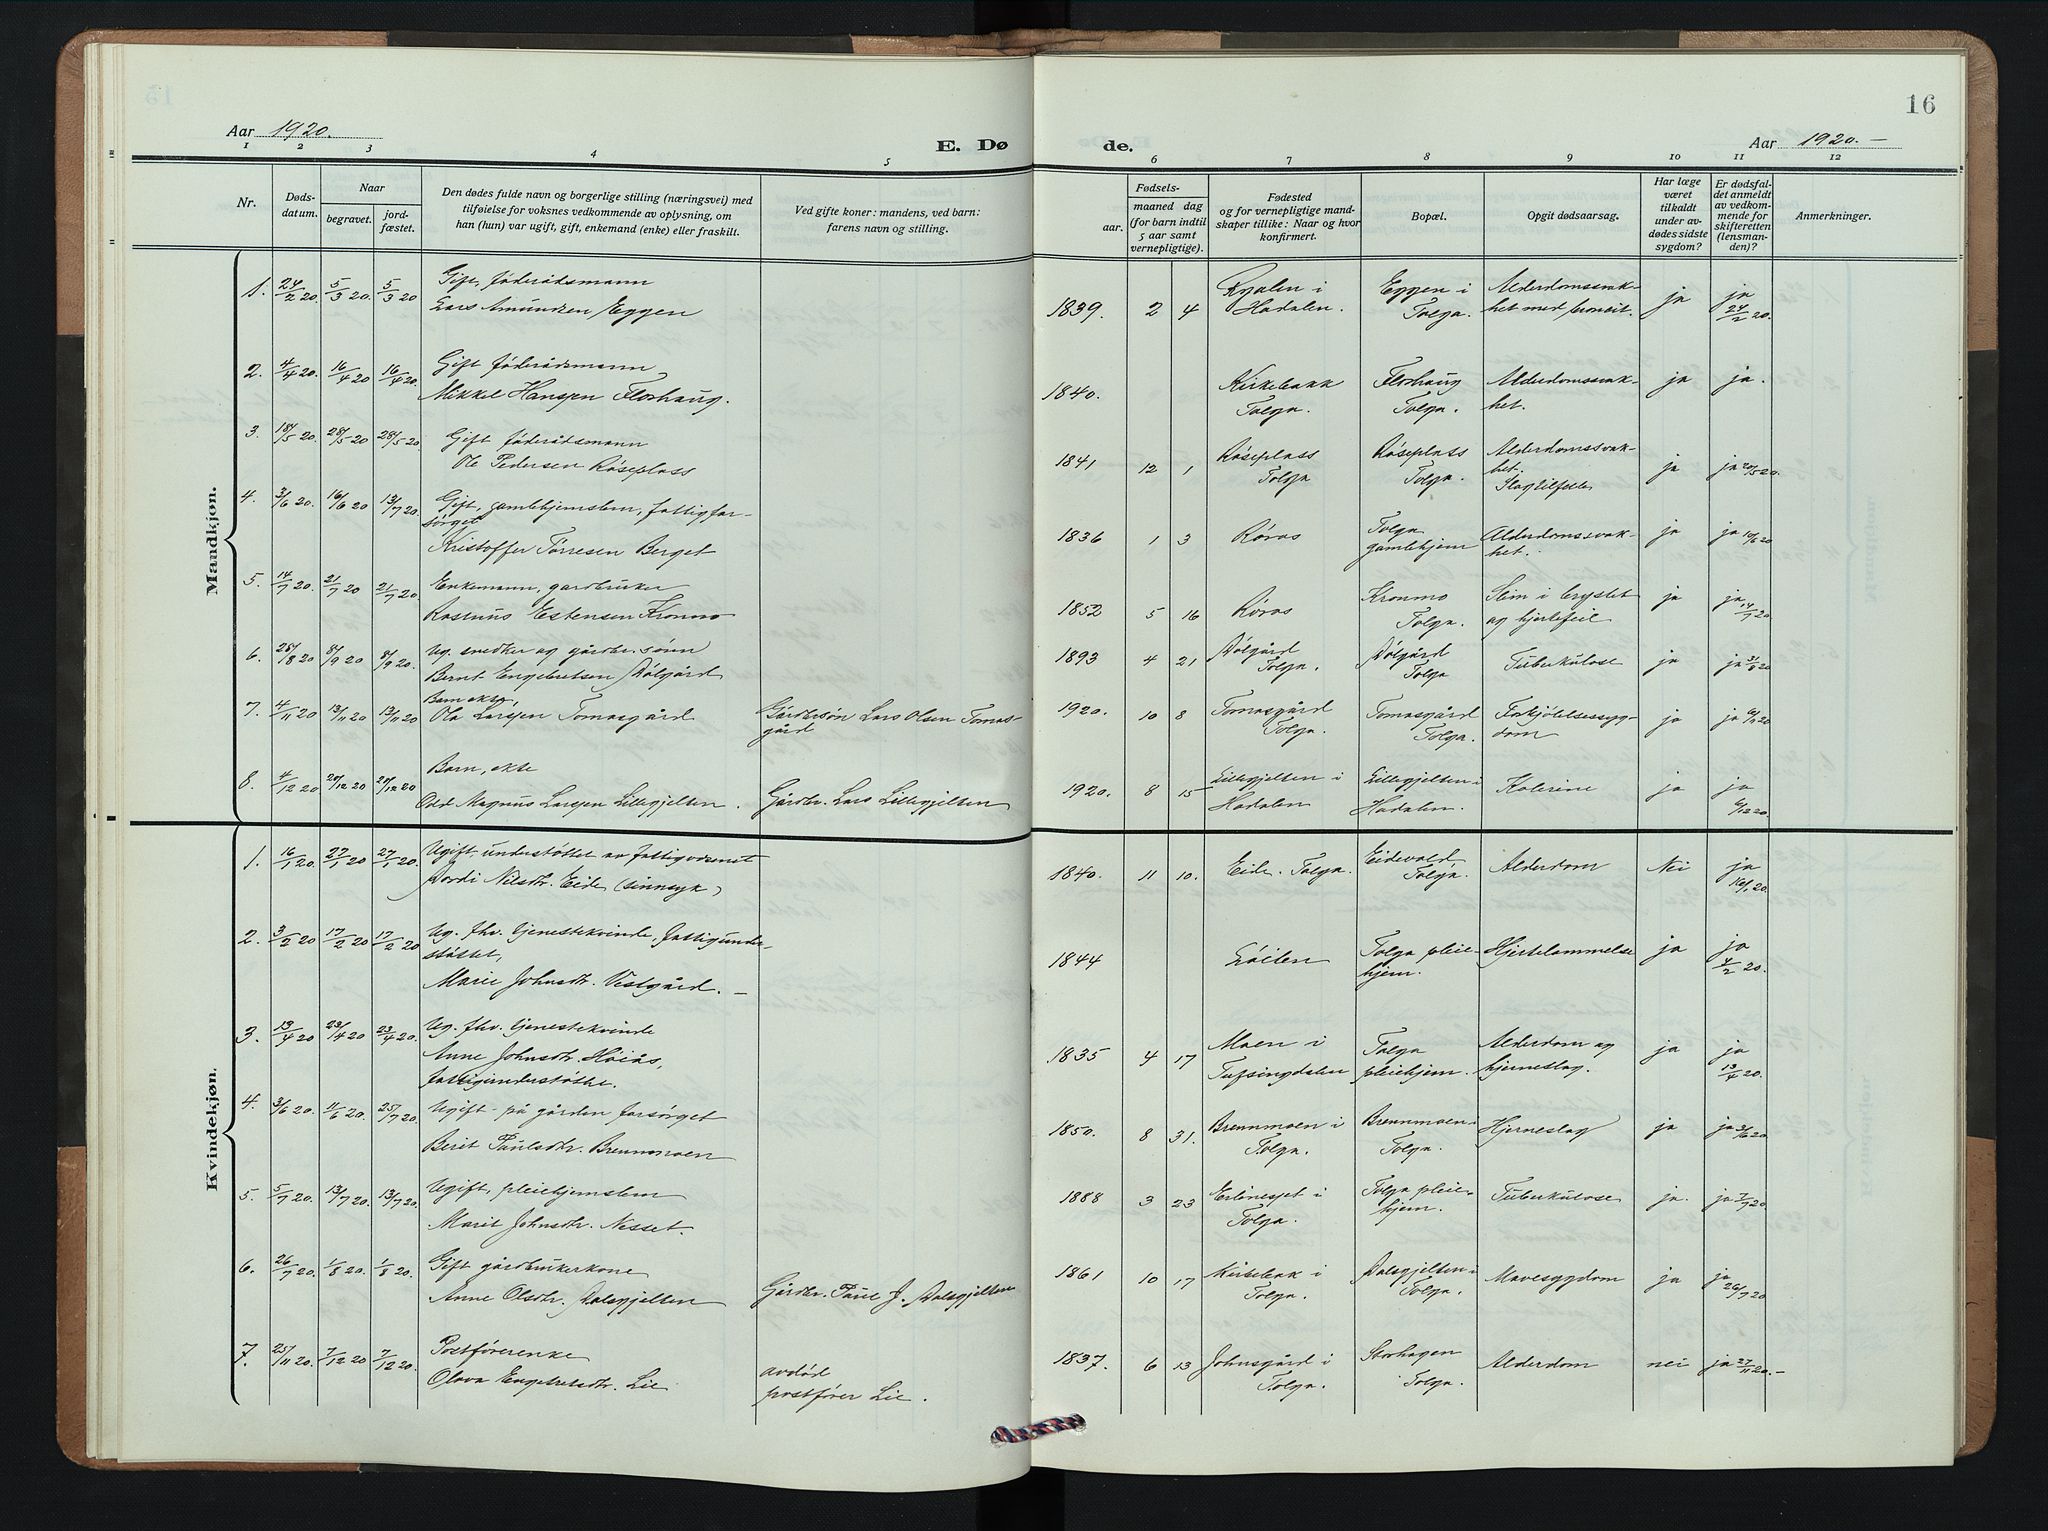 16
Aar 1920.
E. Døde.
Aar 1920.
1 2 3 4 5 6 7 8 9 10 11 12
Nr.
Dødsdatum.
Naar
begravet.
jordfæstet.
Den dødes fulde navn og borgerlige stilling (næringsvei) med
tilføielse for voksnes vedkommende av oplysning, om
han (hun) var ugift, gift, enkemand (enke) eller fraskilt.
Ved gifte koner: mandens, ved barn:
farens navn og stilling.
Fødsels-
aar.
maaned dag
(for barn indtil
5 aar samt
vernepligtige).
Fødested
og for vernepligtige mand-
skaper tillike: Naar og hvor
konfirmert.
Bopæl.
Opgit dødsaarsag.
Har læge
været
tilkaldt
under av-
dødes sidste
sygdom?
Er dødsfal-
det anmeldt
av vedkom-
mende for
skifteretten
(lensman-
den)?
Anmerkninger.
Mandkjøn.
1. 24/2 20. 5/3 20. 5/3 20 Gift, føderådsmann
Lars Amundsen Eggen
1839. 2 4 i Hodalen. Eggen i Tolga. Alderdomssvak-
het med ja ja 24/2 20.
2. 4/4 20. 16/4 20 16/4 20. Gift føderådsmann
Mikkel Hansen Florhaug.
1840. Kirkebakk Tolga. Florhaug Tolga. Alderdomssvak-
het. ja ja.
3. 18/5 20. 28/5 20 28/5 20 Gift føderådsmann
Ole Pedersen Røseplass
1841 12 1 Røseplass Tolga Røseplass Tolga. Alderdomssvak-
het. Slagtilfelle ja ja 20/5 20.
4. 3/6 20. 16/6 20 13/7 20. Gift, gamlehjemslem, fattigfor-
sørget
Kristoffer Tørresen Berget
1836 1 3 Røros Tolga gamlehjem Alderdomssvak-
het. ja ja 10/6 20
5. 14/7 20. 21/7 20 21/7 20. Enkemann, gardbruker
Rasmus Estensen Kronmo
1852 5 16 Røros Kronmo Tolga. Slim i brystet
og hjertefeil ja ja 14/7 20
6. 28/8 20 8/9 20 8/9 20. Ug. snedker og gårdbr. sønn
Bernt Engebretsen Dølgård
1893 4 21 Dølgård Tolga. Dølgård Tolga Tuberkulose ja ja 31/8 20
7. 4/11 20 13/11 20 13/11 20 Barn ekte,
Ola Larsen Tomasgård Gårdbrsøn Lars Olsen Tomas-
gård
1920. 10 8 Tomasgård Tolga. Tomasgård Tolga. Forkjølelsessyg-
dom ja ja 6/11 20
8. 4/12 20 20/12 20 20/12 20 Barn, ekte
Odd Magnus Larsen Lillegjelten. Gårdbr. Lars Lillegjelten
1920. 8 15 Lillegjelten i Hodalen Lillegjelten i Hodalen. Kolerine ja ja 6/12 20
Kvindekjøn.
1. 16/1 20. 27/1 20 27/1 20. Ugift, understøttet av fattigvesenet
Dordi Nilsdtr. Eide (sinnsyk)
1840. 11 10. Eide. Tolga. Eidevold Tolga. Alderdom Nei ja 16/1 20.
2. 3/2 20 17/2 20 17/2 20 Ug. fhv. tjenestekvinde, fattigunder-
støttet,
Marie Johnsdtr. Vestgård.
1844 Løiten Tolga pleie-
hjem. Hjertelammelse ja ja 4/2 20.
3. 13/4 20 23/4 20 23/4 20. Ug. fhv. tjenestekvinde
Anne Johnsdtr. Høiås,
fattigunderstøttet.
1835 4 17 Moen i Tufsingdalen Tolga pleiehjem. Alderdom og
hjerneslag. ja ja 13/4 20.
4. 3/6 20. 11/6 20. 25/7 20. Ugift - på gården forsørget
Berit Paulsdtr. Brennmoen
1850. 8 31. Brennmoen i Tolga. Brennmoen i Tolga. Hjerneslag ja ja 3/6 20
5. 5/7 20. 13/7 20. 13/7 20. Ugift, pleiehjemslem
Marit Johnsdtr. Nesset.
1888 3 23 Erlinesset i Tolga. Tolga pleie-
hjem. Tuberkulose ja. ja 7/7 20.
6. 26/7 20. 1/8 20. 1/8 20. Gift gårdbrukerkone
Anne Olsdtr. Dalsgjelten Gårdbr. Paul J. Dalsgjelten
1861 10 17 Kirkebak i Tolga. Dalsgjelten i Tolga. Mavesygdom ja ja 26/7 20
7. 25/11 20. 7/12 20 7/12 20. Postførerenke
Olava Engebretsdtr. Lie avdød
postfører Lie.
1837. 6 13 Johnsgård i Tolga. Storhagen Tolga. Alderdom nei ja 27/11 20.